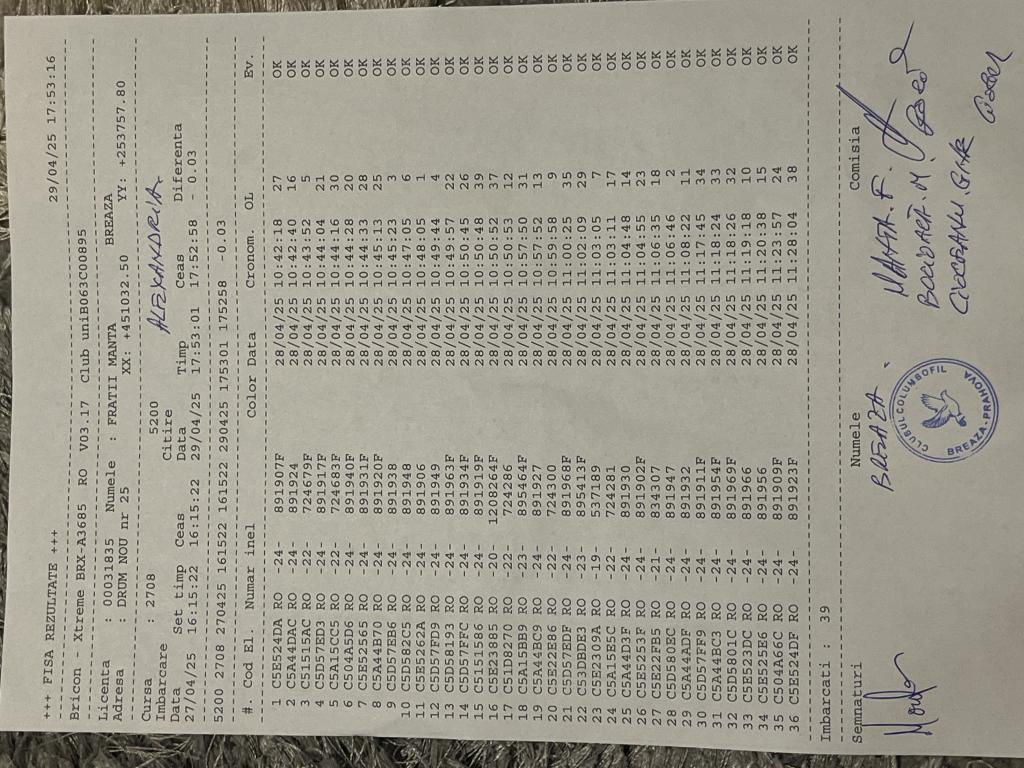 +++ FISA REZULTATE +++ 29/04/25 17:53:16
Bricon - Xtreme BRX-A3685 RO V03.17 Club uniB063C00895
Licenta : 00031835 Numele : FRATII MANTA BREAZA
Adresa : DRUM NOU nr 25 XX: +451032.50 YY: +253757.80
Cursa : 2708 5200 ALEXANDRIA
Imbarcare Citire
Data Set timp Ceas Data Timp Ceas Diferenta
27/04/25 16:15:22 16:15:22 29/04/25 17:53:01 17:52:58 - 0.03
5200 2708 270425 161522 161522 290425 175301 175258 -0.03
#. Cod El. Numar inel Color Data Cronom. OL Ev.
1 C5E524DA RO -24- 891907F 28/04/25 10:42:18 27 OK
2 C5A44DAC RO -24- 891924 28/04/25 10:42:40 16 OK
3 C51515AC RO -22- 724679F 28/04/25 10:43:52 5 OK
4 C5D57ED3 RO -24- 891917F 28/04/25 10:44:04 21 OK
5 C5A15CC5 RO -22- 724683F 28/04/25 10:44:16 30 OK
6 C504A5D6 RO -24- 891940F 28/04/25 10:44:28 20 OK
7 C5E52565 RO -24- 891931F 28/04/25 10:44:33 28 OK
8 C5A44B70 RO -24- 891920F 28/04/25 10:45:13 25 OK
9 C5D57EB6 RO -24- 891938 28/04/25 10:45:23 3 OK
10 C5D582C5 RO -24- 891948 28/04/25 10:47:05 6 OK
11 C5E5262A RO -24- 891906 28/04/25 10:48:05 1 OK
12 C5D57FD9 RO -24- 891949 28/04/25 10:49:36 4 OK
13 C5D58193 RO -24- 891963F 28/04/25 10:49:57 22 OK
14 C5D57FFC RO -24- 891934F 28/04/25 10:50:45 26 OK
15 C5151586 RO -24- 891919F 28/04/25 10:50:48 39 OK
16 C5E23885 RO -20- 1208264F 28/04/25 10:50:52 37 OK
17 C51D8270 RO -22- 724286 28/04/25 10:50:53 12 OK
18 C5A15BB9 RO -23- 895464F 28/04/25 10:57:50 31 OK
19 C5A44BC9 RO -24- 891927 28/04/25 10:57:52 13 OK
20 C5E22E86 RO -22- 724300 28/04/25 10:59:58 9 OK
21 C5D57EDF RO -24- 891968F 28/04/25 11:00:25 35 OK
22 C53DBDE3 RO -23- 895413F 28/04/25 11:02:09 29 OK
23 C5E2309A RO -19- 537189 28/04/25 11:03:05 7 OK
24 C5A15E5C RO -22- 724281 28/04/25 11:03:11 17 OK
25 C5A44D3F RO -24- 891930 28/04/25 11:04:48 14 OK
26 C5E5253F RO -24- 891902F 28/04/25 11:04:55 23 OK
27 C5E22FB5 RO -21- 834307 28/04/25 11:06:35 18 OK
28 C5D580EC RO -24- 891947 28/04/25 11:06:46 2 OK
29 C5A44ADF RO -24- 891932 28/04/25 11:08:22 11 OK
30 C5D57FF9 RO -24- 891911F 28/04/25 11:17:45 34 OK
31 C5A44BC3 RO -24- 891954F 28/04/25 11:18:24 33 OK
32 C5D5801C RO -24- 891969F 28/04/25 11:18:26 32 OK
33 C5E523DC RO -24- 891966 28/04/25 11:19:18 10 OK
34 C5E525E6 RO -24- 891956 28/04/25 11:20:38 15 OK
35 C504A66C RO -24- 891909F 28/04/25 11:23:57 24 OK
36 C5E524DF RO -24- 891923F 28/04/25 11:28:04 38 OK
Imbarcati : 39
Semnaturi Numele Comisia
BREAZA
MANTA.F.
CLUBUL COLUMBOFIL
BREAZA-PRAHOVA